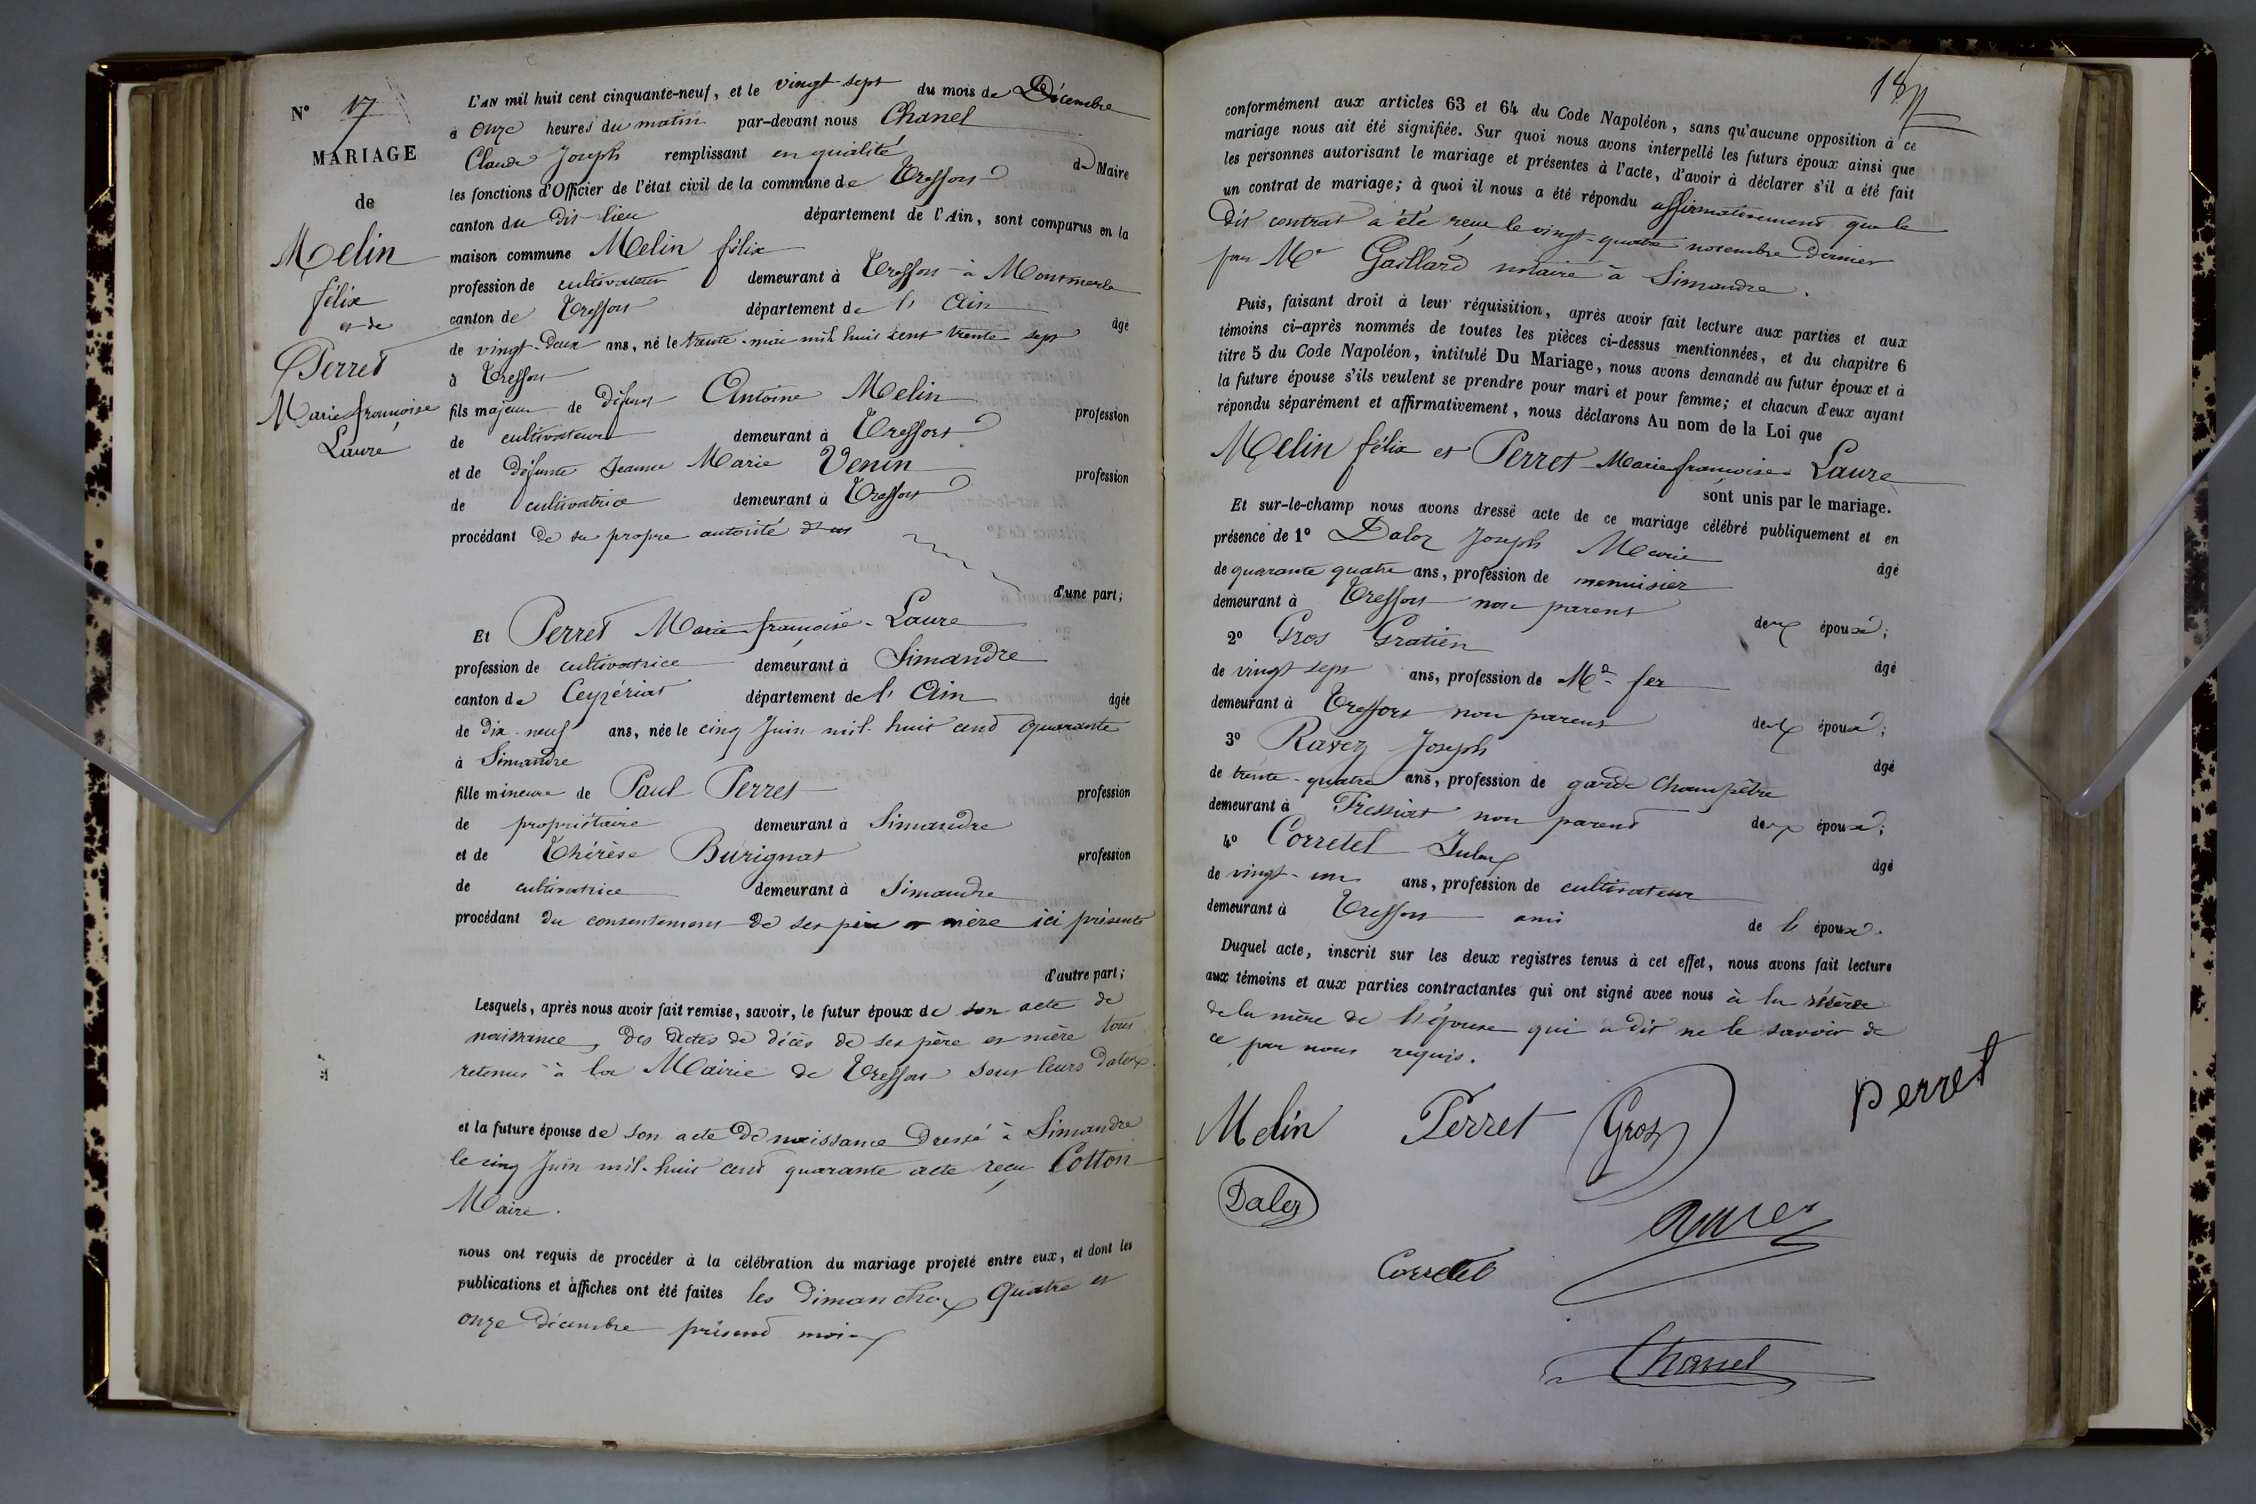 N° 17
MARIAGE
de
Melin
félix
et de
Perret
Marie françoise
Laure
L'AN mil huit cent cinquante-neuf, et le vingt sept du mois de Décembre
à onze heures du matin par-devant nous Chanel
Claude Joseph remplissant en qualité de Maire
les fonctions d'Officier de l'état civil de la commune de Treffort
canton du dit lieu département de l'Ain, sont comparus en la
maison commune Melin félix
profession de cultivateur demeurant à Treffort à Montmerle
canton de Treffort département de l'Ain âgé
de vingt-deux ans, né le trente mai mil huit cent trente sept
à Treffort
fils majeur de défunt Antoine Melin profession
de cultivateur demeurant à Treffort
et de défunte Jeanne Marie Venin profession
de cultivatrice demeurant à Treffort
procédant de sa propre autorité
d'une part;
Et Perret Marie françoise-Laure
profession de cultivatrice demeurant à Simandre
canton de Ceyzériat département de l'Ain âgée
de dix-neuf ans, née le cinq Juin mil-huit cent quarante
à Simandre
fille mineure de Paul Perret profession
de propriétaire demeurant à Simandre
et de Thérèse Burignat profession
de cultivatrice demeurant à Simandre
procédant du consentement de ses père et mère ici présents
d'autre part;
Lesquels, après nous avoir fait remise, savoir, le futur époux de son acte de
naissance, des actes de décès de ses père et mère tous
retenus à la Mairie de Treffort sous leurs dates
et la future épouse de son acte de naissance dressé à Simandre
le cinq Juin mil-huit cent quarante acte reçu Cotton
Maire.
nous ont requis de procéder à la célébration du mariage projeté entre eux, et dont les
publications et affiches ont été faites les dimanches quatre et
onze décembre présent mois
18
conformément aux articles 63 et 64 du Code Napoléon, sans qu'aucune opposition à ce
mariage nous ait été signifiée. Sur quoi nous avons interpellé les futurs époux ainsi que
les personnes autorisant le mariage et présentes à l'acte, d'avoir à déclarer s'il a été fait
un contrat de mariage; à quoi il nous a été répondu affirmativement que le
dit contrat a été reçu le vingt-quatre novembre dernier
par Me Gaillard notaire à Simandre.
Puis, faisant droit à leur réquisition, après avoir fait lecture aux parties et aux
témoins ci-après nommés de toutes les pièces ci-dessus mentionnées, et du chapitre 6
titre 5 du Code Napoléon, intitulé Du Mariage, nous avons demandé au futur époux et à
la future épouse s'ils veulent se prendre pour mari et pour femme; et chacun d'eux ayant
répondu séparément et affirmativement, nous déclarons Au nom de la Loi que
Melin félix et Perret Marie françoise Laure
sont unis par le mariage.
Et sur-le-champ nous avons dressé acte de ce mariage célébré publiquement et en
présence de 1° Daloz Joseph Marie âgé
de quarante quatre ans, profession de menuisier
demeurant à Treffort non parent des époux;
2° Gros Gratien âgé
de vingt sept ans, profession de Md fer
demeurant à Treffort non parent des époux;
3° Ravez Joseph âgé
de trente-quatre ans, profession de garde Champêtre
demeurant à Pressiat non parent des époux;
4° Corretel Jules âgé
de vingt-un ans, profession de cultivateur
demeurant à Treffort ami de l'époux.
Duquel acte, inscrit sur les deux registres tenus à cet effet, nous avons fait lecture
aux témoins et aux parties contractantes qui ont signé avec nous à la réserve
de la mère de l'épouse qui a dit ne le savoir de
ce par nous requis.
Melin Perret Gros perret
Daloz
Corretel
Chanel